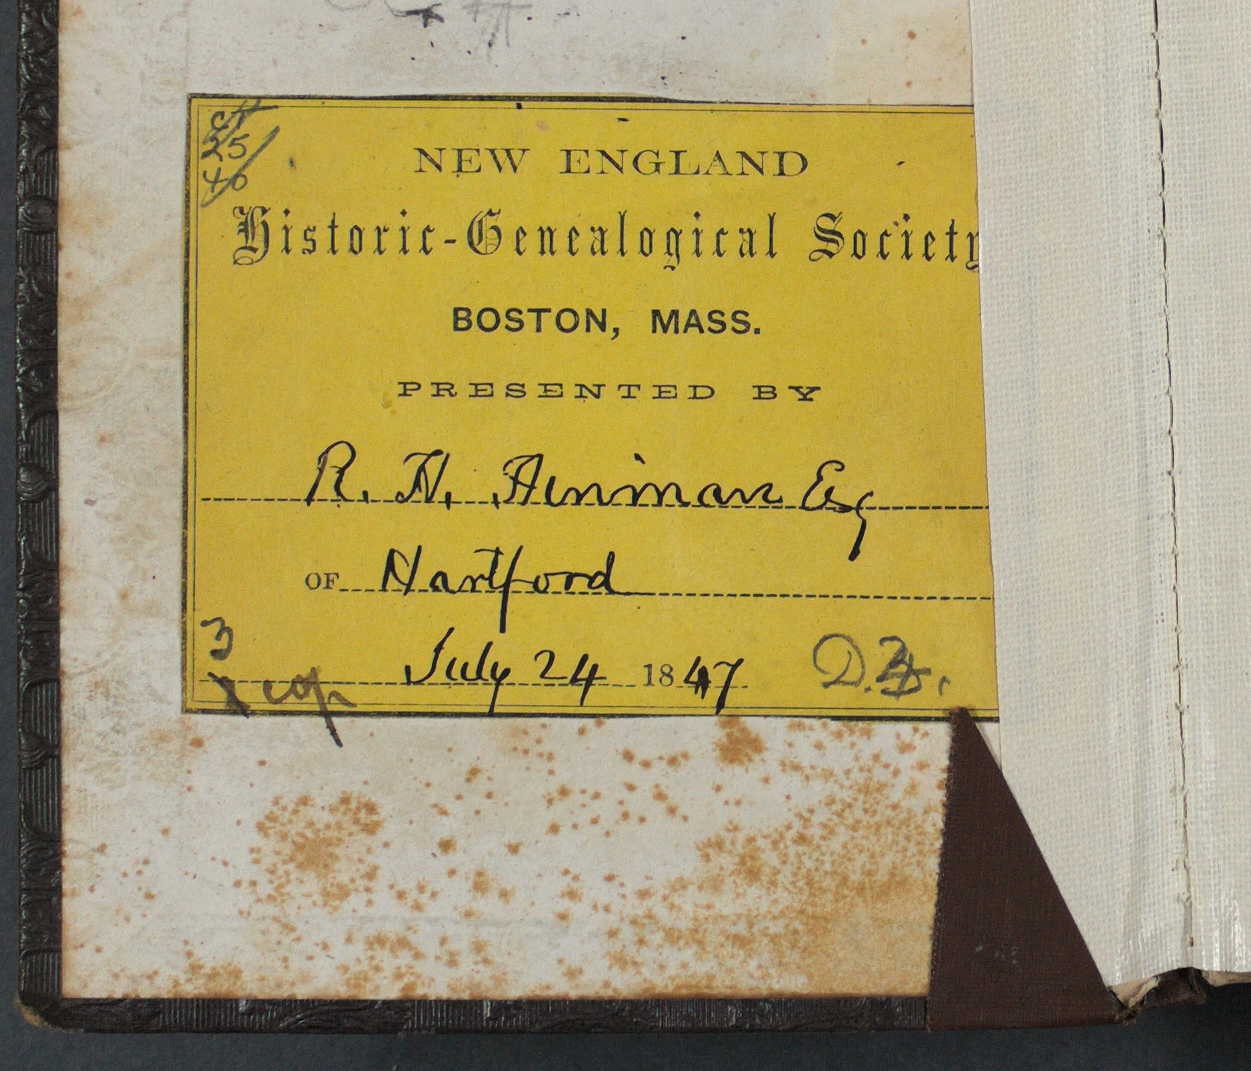 CT
25
46
NEW ENGLAND
Historic-Genealogical Society
BOSTON, MASS.
PRESENTED BY
R. H. Hinman Esq
OF Hartford
July 24 1847
3
cop